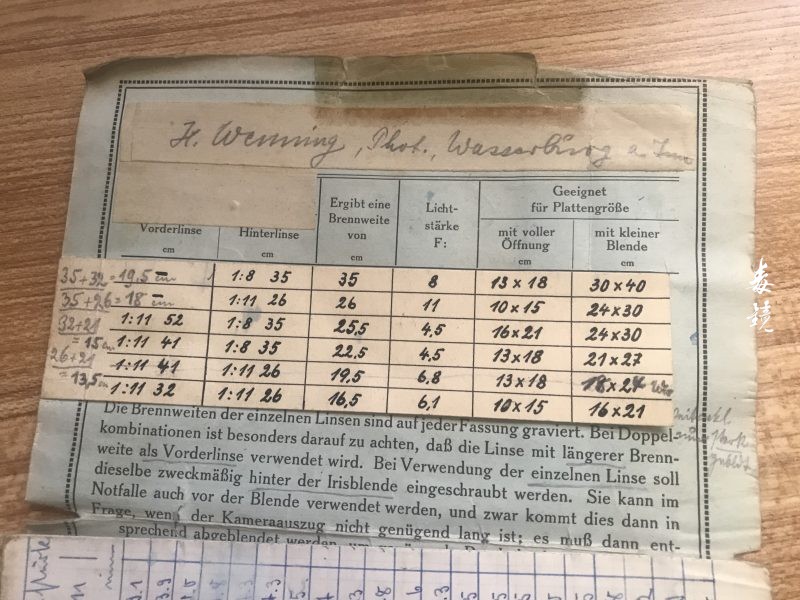 H. Wenning, Phot., Wasserburg a. Inn
Vorderlinse cm Hinterlinse cm Ergibt eine Brennweite von cm Licht-stärke F: Geeignet für Plattengröße
mit voller Öffnung cm mit kleiner Blende cm
35+32 = 19.5 cm 1:8 35 35 8 13 x 18 30 x 40
35+26 = 18 cm 1:11 26 26 11 10 x 15 24 x 30
32+21 1:11 52 1:8 35 25,5 4,5 16 x 21 24 x 30
= 15 cm 1:11 41 1:8 35 22,5 4.5 13 x 18 21 x 27
26+21 1:11 41 1:11 26 19,5 6,8 13 x 18 18 x 24
= 13,5 cm 1:11 32 1:11 26 16,5 6,1 10 x 15 16 x 21
Die Brennweiten der einzelnen Linsen sind auf jeder Fassung graviert. Bei Doppel-
kombinationen ist besonders darauf zu achten, daß die Linse mit längerer Brenn-
weite als Vorderlinse verwendet wird. Bei Verwendung der einzelnen Linse soll
dieselbe zweckmäßig hinter der Irisblende eingeschraubt werden. Sie kann im
Notfalle auch vor der Blende verwendet werden, und zwar kommt dies dann in
Frage, wenn der Kameraauszug nicht genügend lang ist; es muß dann ent-
sprechend abgeblendet werden